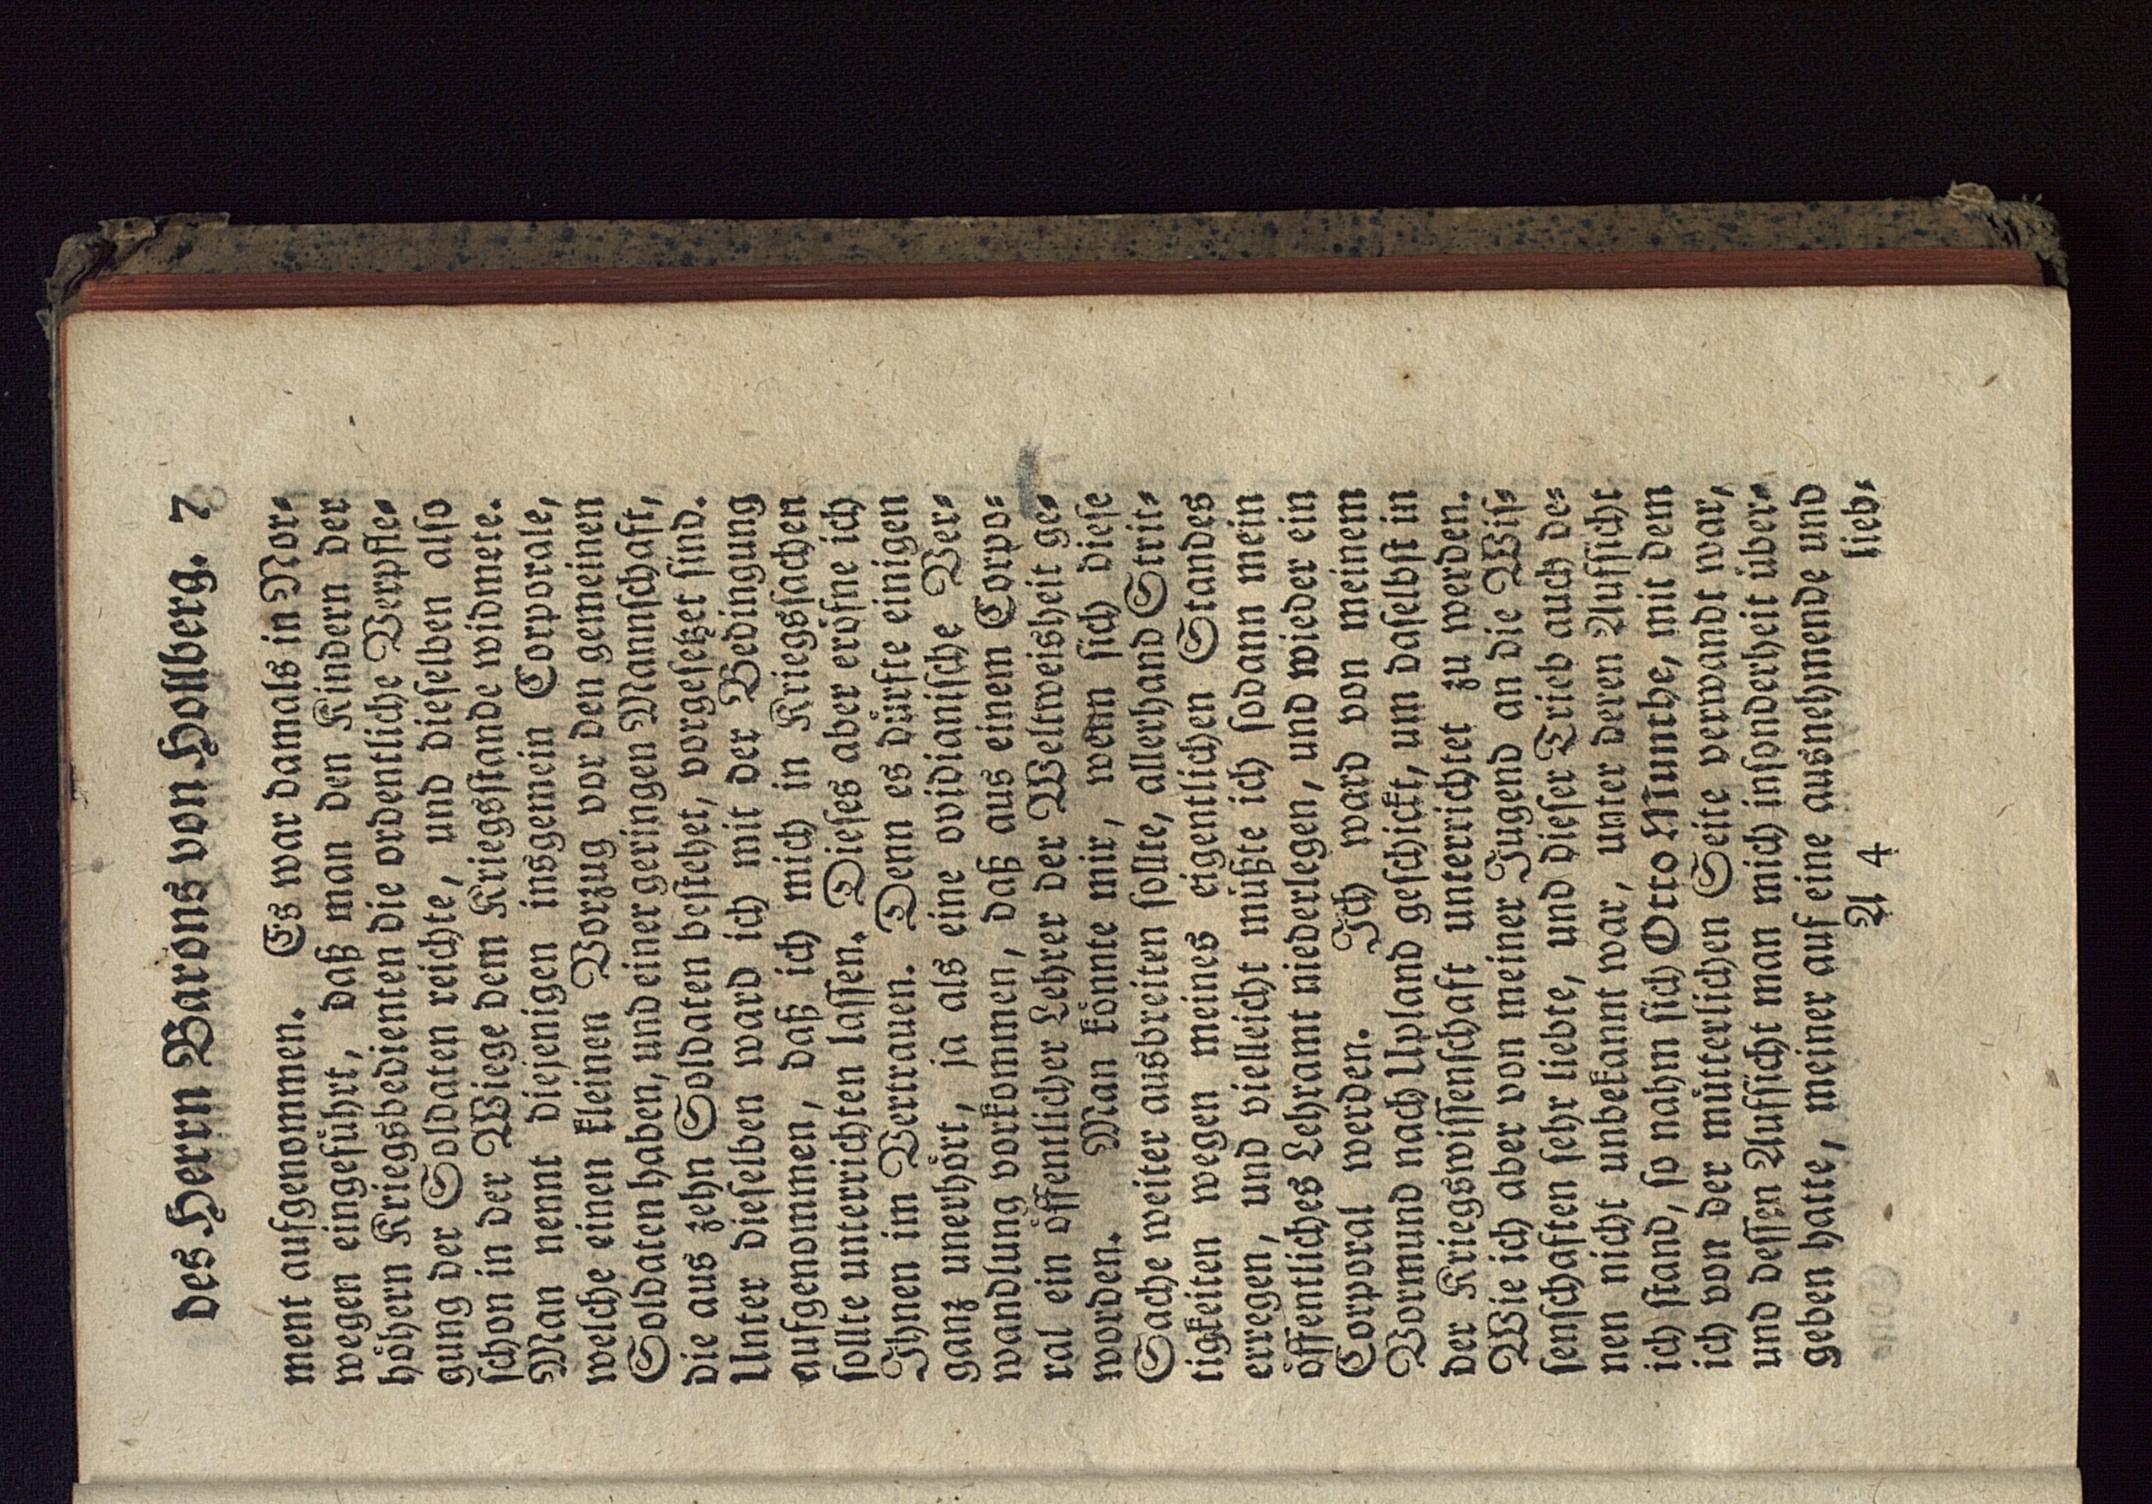 des Herrn Barons von Hollberg. 7
ment aufgenommen. Es war damals in Nor-
wegen eingeführt, daß man den Kindern der
höhern Kriegsbedienten die ordentliche Verpfle-
gung der Soldaten reichte, und dieselben also
schon in der Wiege dem Kriegsstande widmete.
Man nennt diejenigen insgemein Corporale,
welche einen kleinen Vorzug vor den gemeinen
Soldaten haben, und einer geringen Mannschaft,
die aus zehn Soldaten bestehet, vorgesetzet sind.
Unter dieselben ward ich mit der Bedingung
aufgenommen, daß ich mich in Kriegssachen
sollte unterrichten lassen. Dieses aber eröfne ich
Ihnen im Vertrauen. Denn es dürfte einigen
ganz unerhört, ja als eine ovidianische Ver-
wandlung vorkommen, daß aus einem Corpo-
ral ein öffentlicher Lehrer der Weltweisheit ge-
worden. Man könnte mir, wenn sich diese
Sache weiter ausbreiten sollte, allerhand Strit-
tigkeiten wegen meines eigentlichen Standes
erregen, und vielleicht müßte ich sodann mein
öffentliches Lehramt niederlegen, und wieder ein
Corporal werden. Ich ward von meinem
Vormund nach Upland geschickt, um daselbst in
der Kriegswissenschaft unterrichtet zu werden.
Wie ich aber von meiner Jugend an die Wis-
senschaften sehr liebte, und dieser Trieb auch de-
nen nicht unbekannt war, unter deren Aufsicht
ich stand, so nahm sich Otto Munthe, mit dem
ich von der mütterlichen Seite verwandt war,
und dessen Aufsicht man mich insonderheit über-
geben hatte, meiner auf eine ausnehmende und
A 4 lieb-